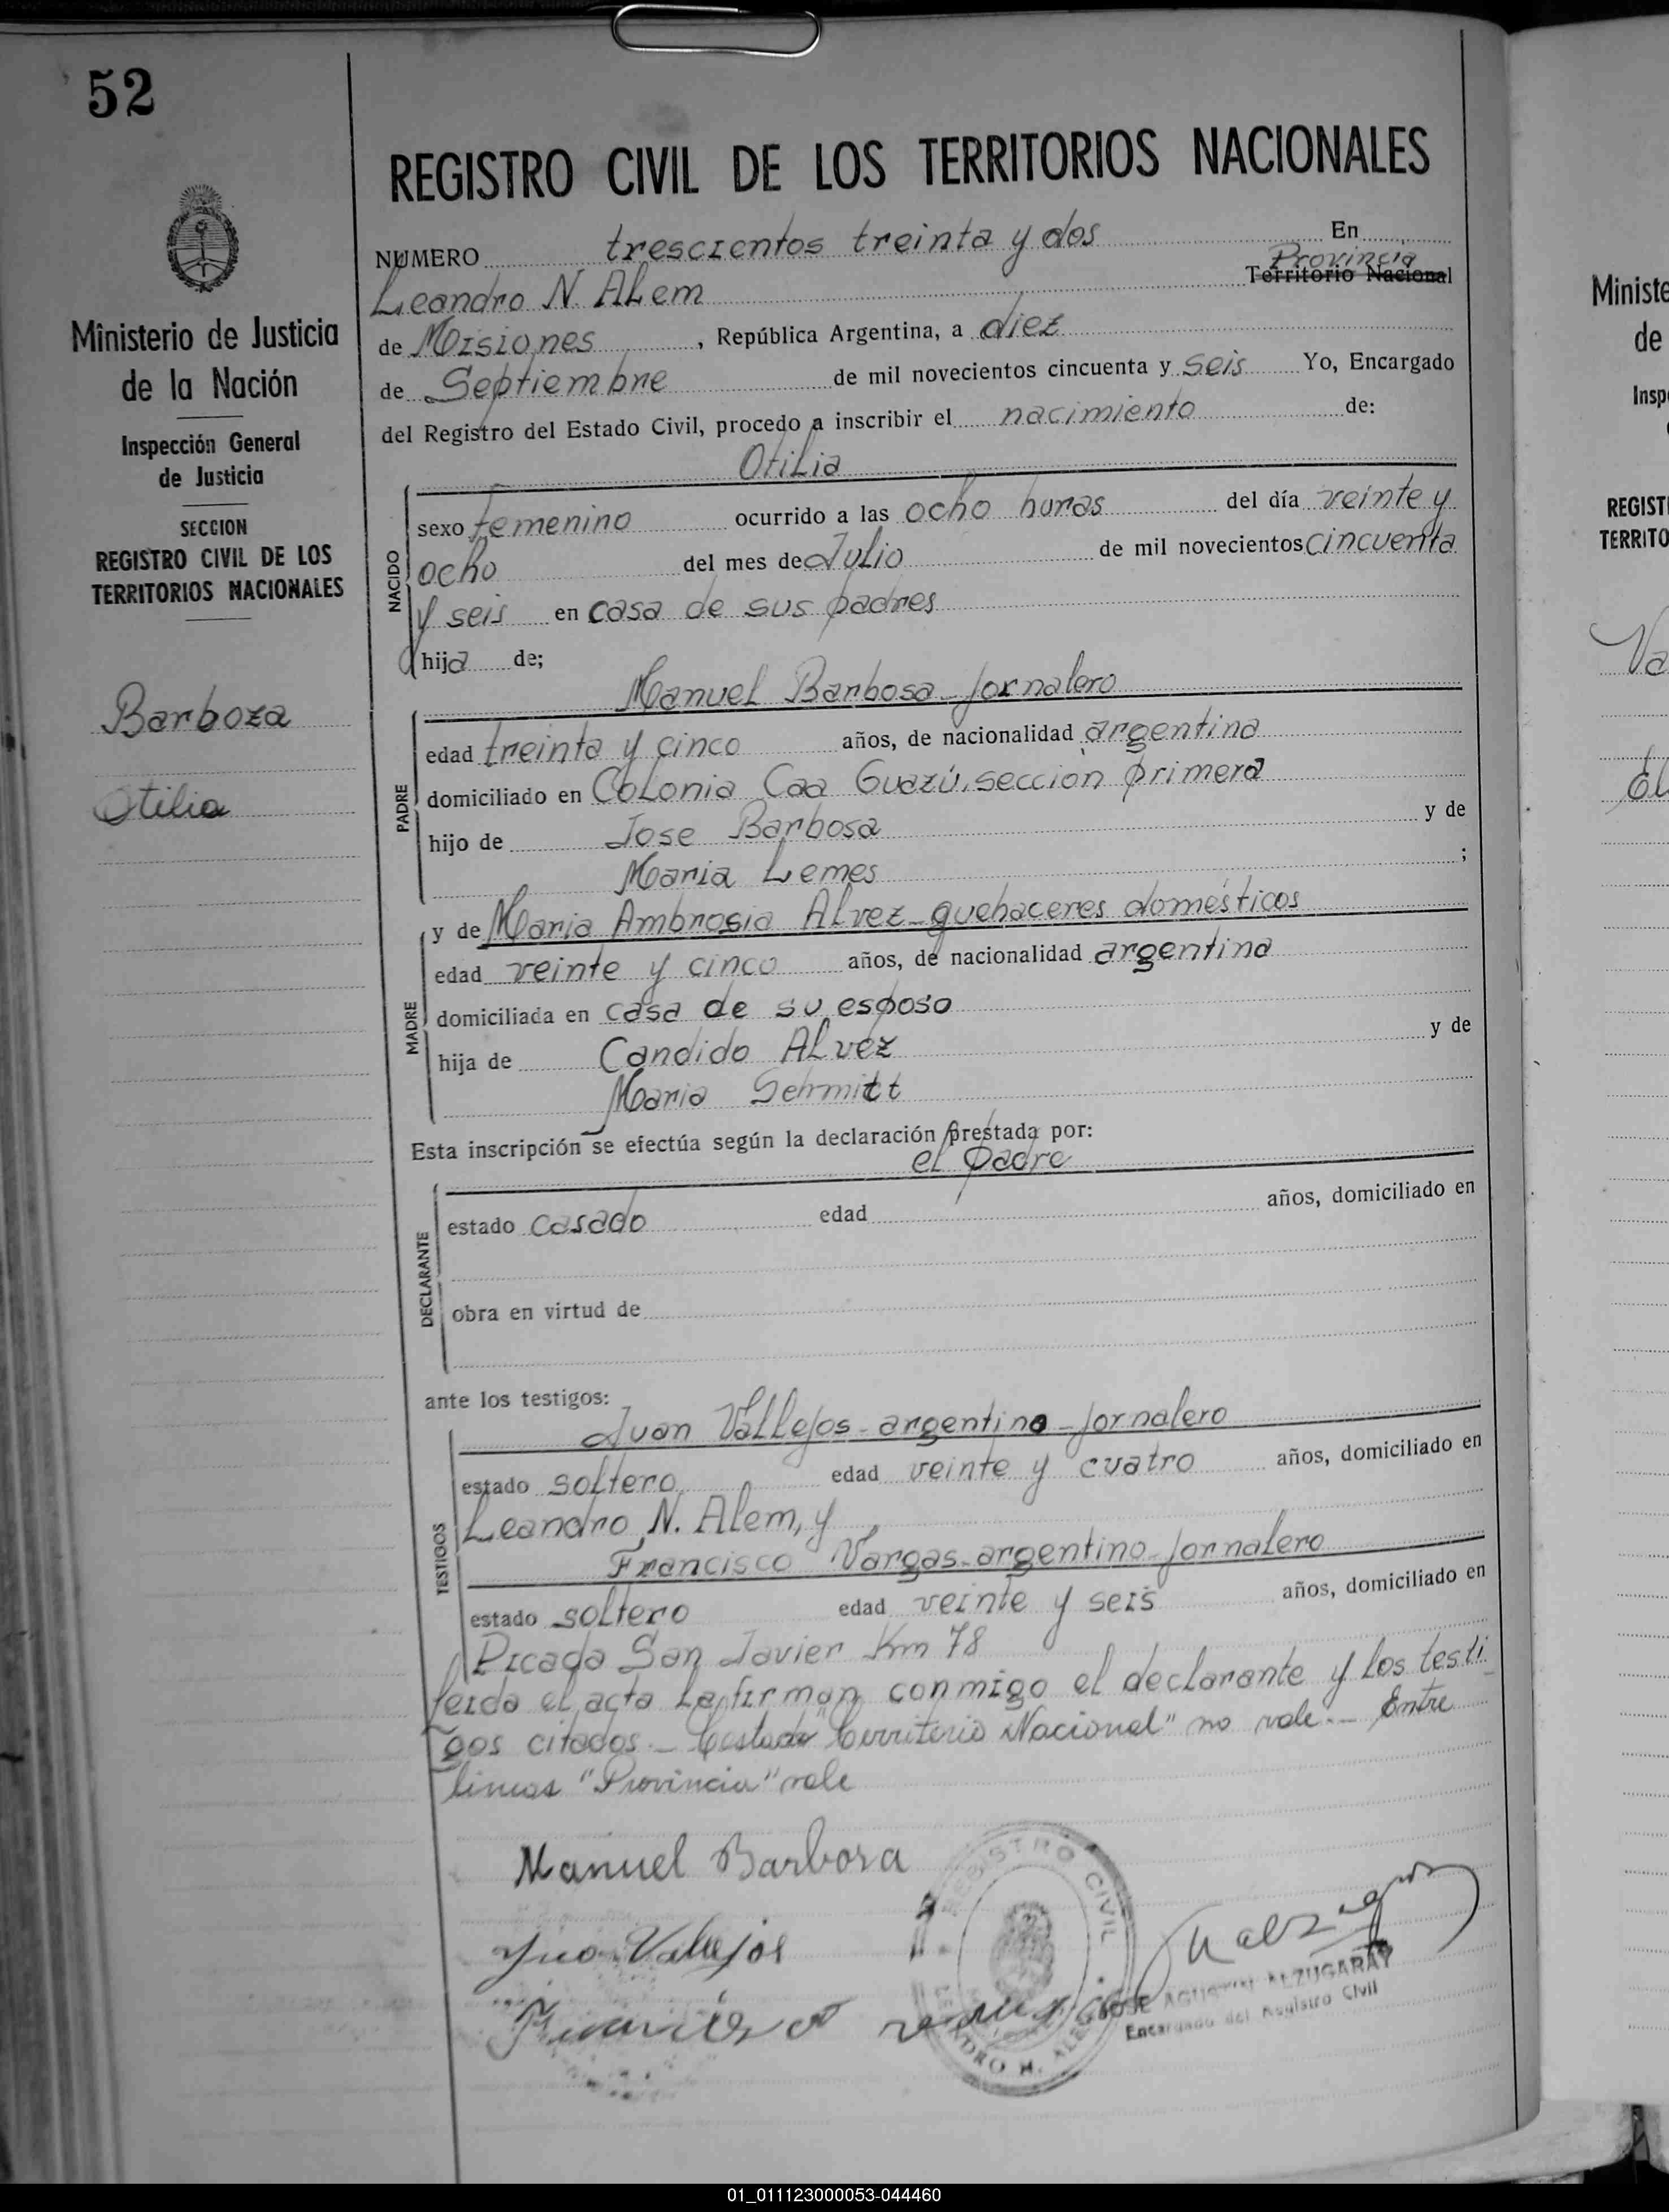 52
Ministerio de Justicia
de la Nación
Inspección General
de Justicia
SECCION
REGISTRO CIVIL DE LOS
TERRITORIOS NACIONALES
Barboza
Otilia
REGISTRO CIVIL DE LOS TERRITORIOS NACIONALES
NUMERO trescientos treinta y dos En
Provincia
Leandro N. Alem Territorio Nacional
de Misiones, República Argentina, a diez
de Septiembre de mil novecientos cincuenta y seis Yo, Encargado
del Registro del Estado Civil, procedo a inscribir el nacimiento de:
Otilia
NACIDO
sexo femenino ocurrido a las ocho horas del día veinte y
ocho del mes de Julio de mil novecientos cincuenta
y seis en casa de sus padres
hija de;
Manuel Barbosa - jornalero
PADRE
edad treinta y cinco años, de nacionalidad argentina
domiciliado en Colonia Caa Guazú, sección primera
hijo de Jose Barbosa y de
Maria Lemes ;
y de Maria Ambrosia Alvez - quehaceres domésticos
MADRE
edad veinte y cinco años, de nacionalidad argentina
domiciliada en casa de su esposo
hija de Candido Alvez y de
Maria Schmitt
Esta inscripción se efectúa según la declaración prestada por:
el padre
DECLARANTE
estado casado edad años, domiciliado en
obra en virtud de
ante los testigos:
Juan Vallejos - argentino - jornalero
TESTIGOS
estado soltero edad veinte y cuatro años, domiciliado en
Leandro N. Alem, y
Francisco Vargas - argentino - jornalero
estado soltero edad veinte y seis años, domiciliado en
Picada San Javier Km 78
leida el acta la firman conmigo el declarante y los testi
gos citados.- Testado "Territorio Nacional" no vale.- Entre
lineas "Provincia" vale
Manuel Barbosa
REGISTRO CIVIL
JOSE AGUSTIN ALZUGARAY
Encargado del Registro Civil
Ministe
de
Insp
REGISTR
TERRITO
01_011123000053-044460